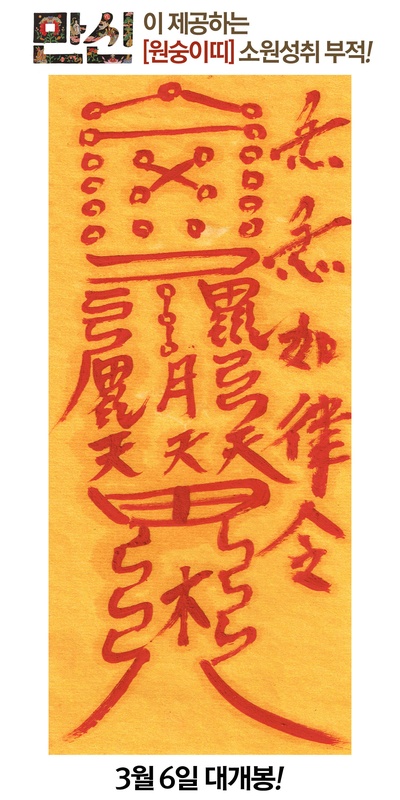 만신 이 제공하는
[원숭이띠] 소원성취 부적!
急急如律令
弓 天
月 天
弓 天
木
3월 6일 대개봉!